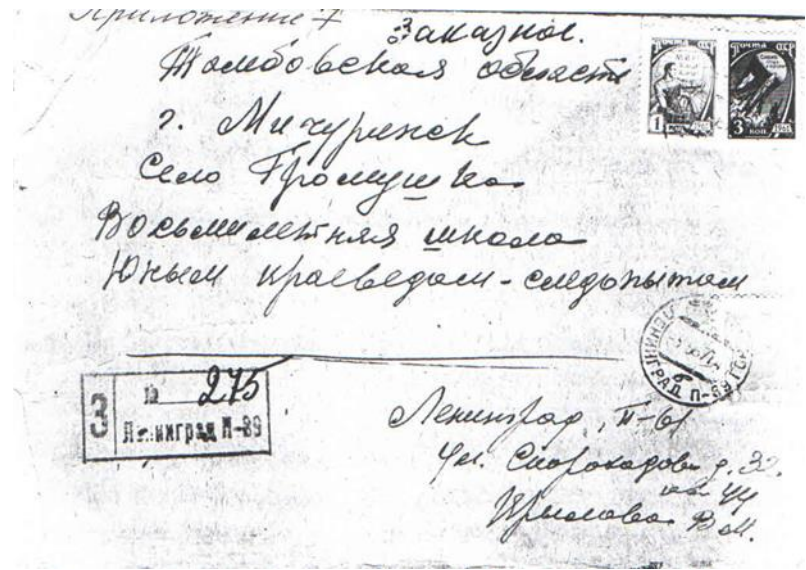 Приложение 7
Заказное.
Тамбовская область
г. Мичуринск
Село Громушка
Восьмилетняя школа
Юным краеведам-следопытам
ПОЧТА СССР
1 КОП 1961
ПОЧТА СССР
3 КОП 1961
З № 275
Ленинград П-89
Ленинград, П-61
Ул. Скороходова д. 32.
кв 44
Крылова В М.